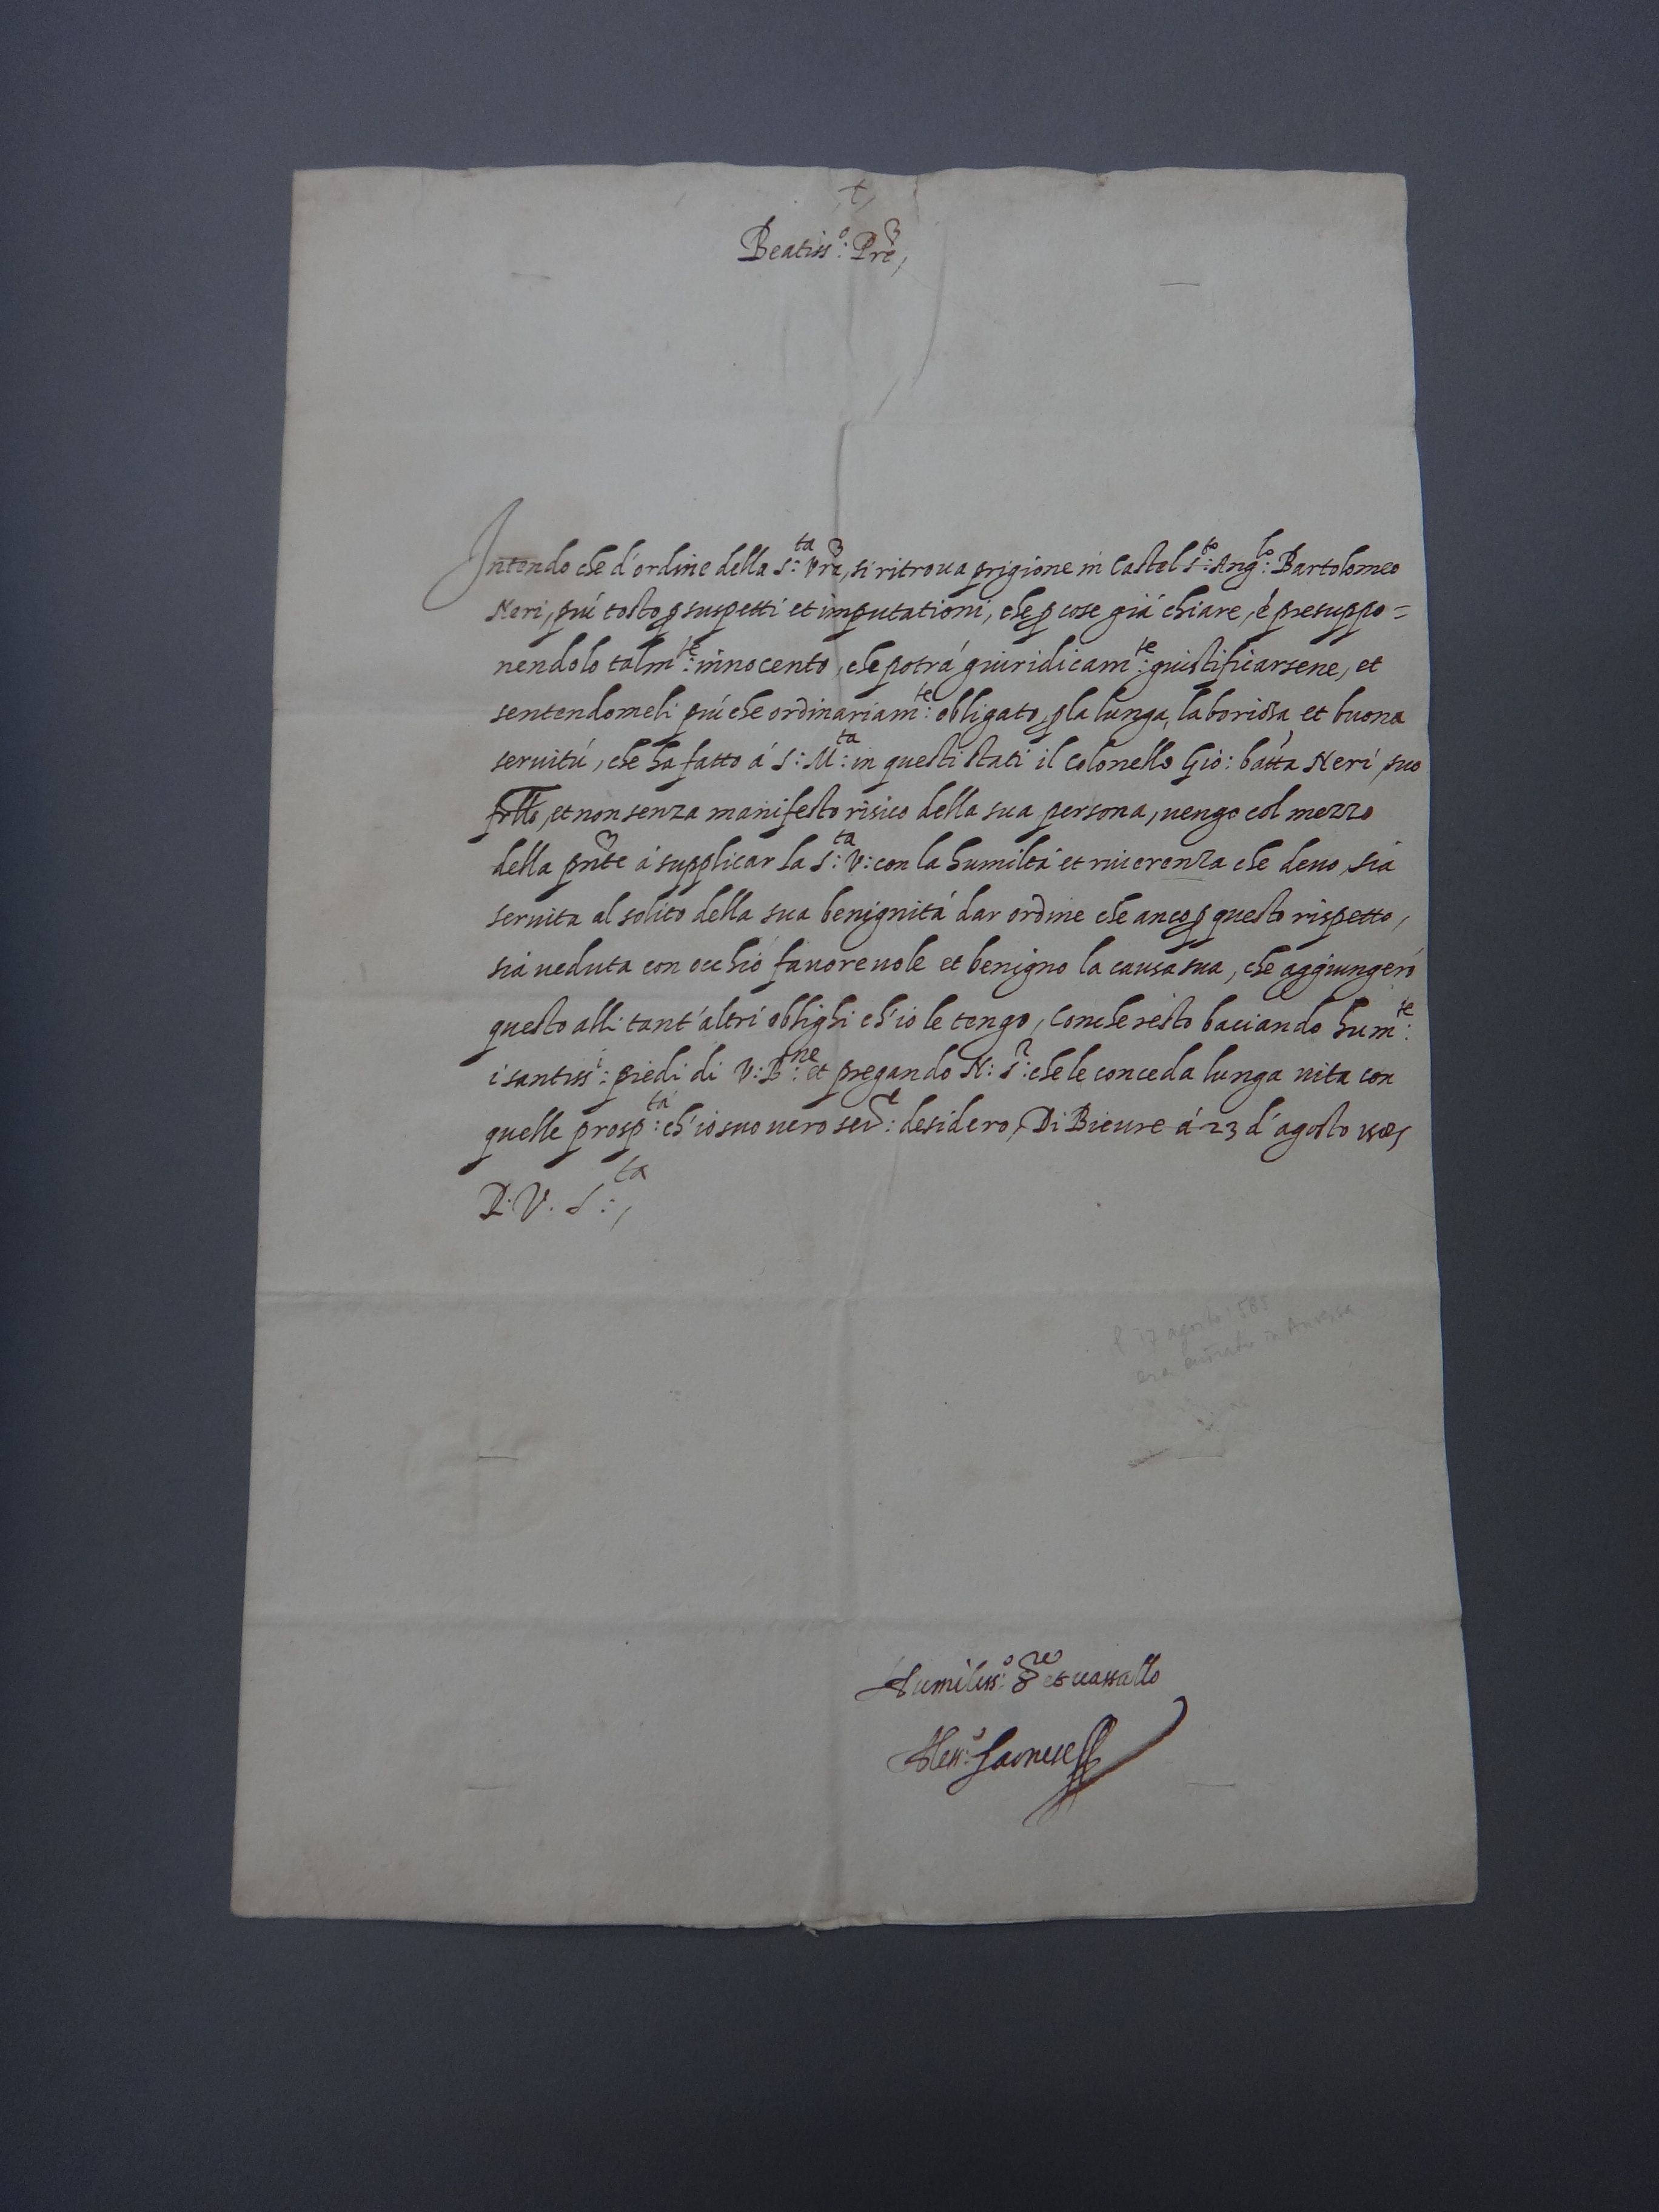 +
Beatiss:º Prẽ,
Intendo che d'ordine della S:ta Vrã, si ritroua prigione in Castel S:to Ang:lo Bartolomeo
Neri, piú tosto ꝑ suspetti et imputationi, che ꝑ cose giá chiare, é presuppo=
nendolo talm:te innocente, che potrá giuridicam:te giustificarsene, et
sentendomeli piú che ordinariam:te obligato, ꝑ la lunga, laboriosa, et buona
seruitú, che ha fatto á S: M:ta in questi stati il Colonello Gio: batta Neri suo
frllo, et non senza manifesto risico della sua persona, uengo col mezzo
della pñte á supplicar la S:ta V: con la humiltá et riuerenza che deuo, sia
seruita al solito della sua benignitá dar ordine che anco ꝑ questo rispetto,
sia ueduta con occhio fauoreuole et benigno la causa sua, che aggiungeró
questo alli tant'altri oblighi ch'io le tengo, Con che resto baciando hum:te
i santiss:i piedi di V: B:ne et pregando N: S:r che le conceda lunga uita con
quelle prosp:tá ch'io suo uero ser:e desidero, Di Bieure á 23 d'agosto 1585
D. V. S:ta,
l 17 agosto 1585
era entrato in Anversa
Humiliss:º Se:re et uassallo
Aless:º Farnese